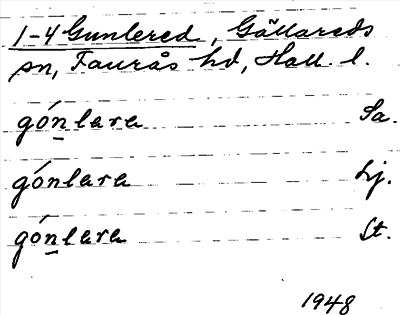 1-4 Gunlered, Gällareds
sn, Faurås hd, Hall. l.
gónlara Sa.
gónlara Lj.
gónlara St.
1948